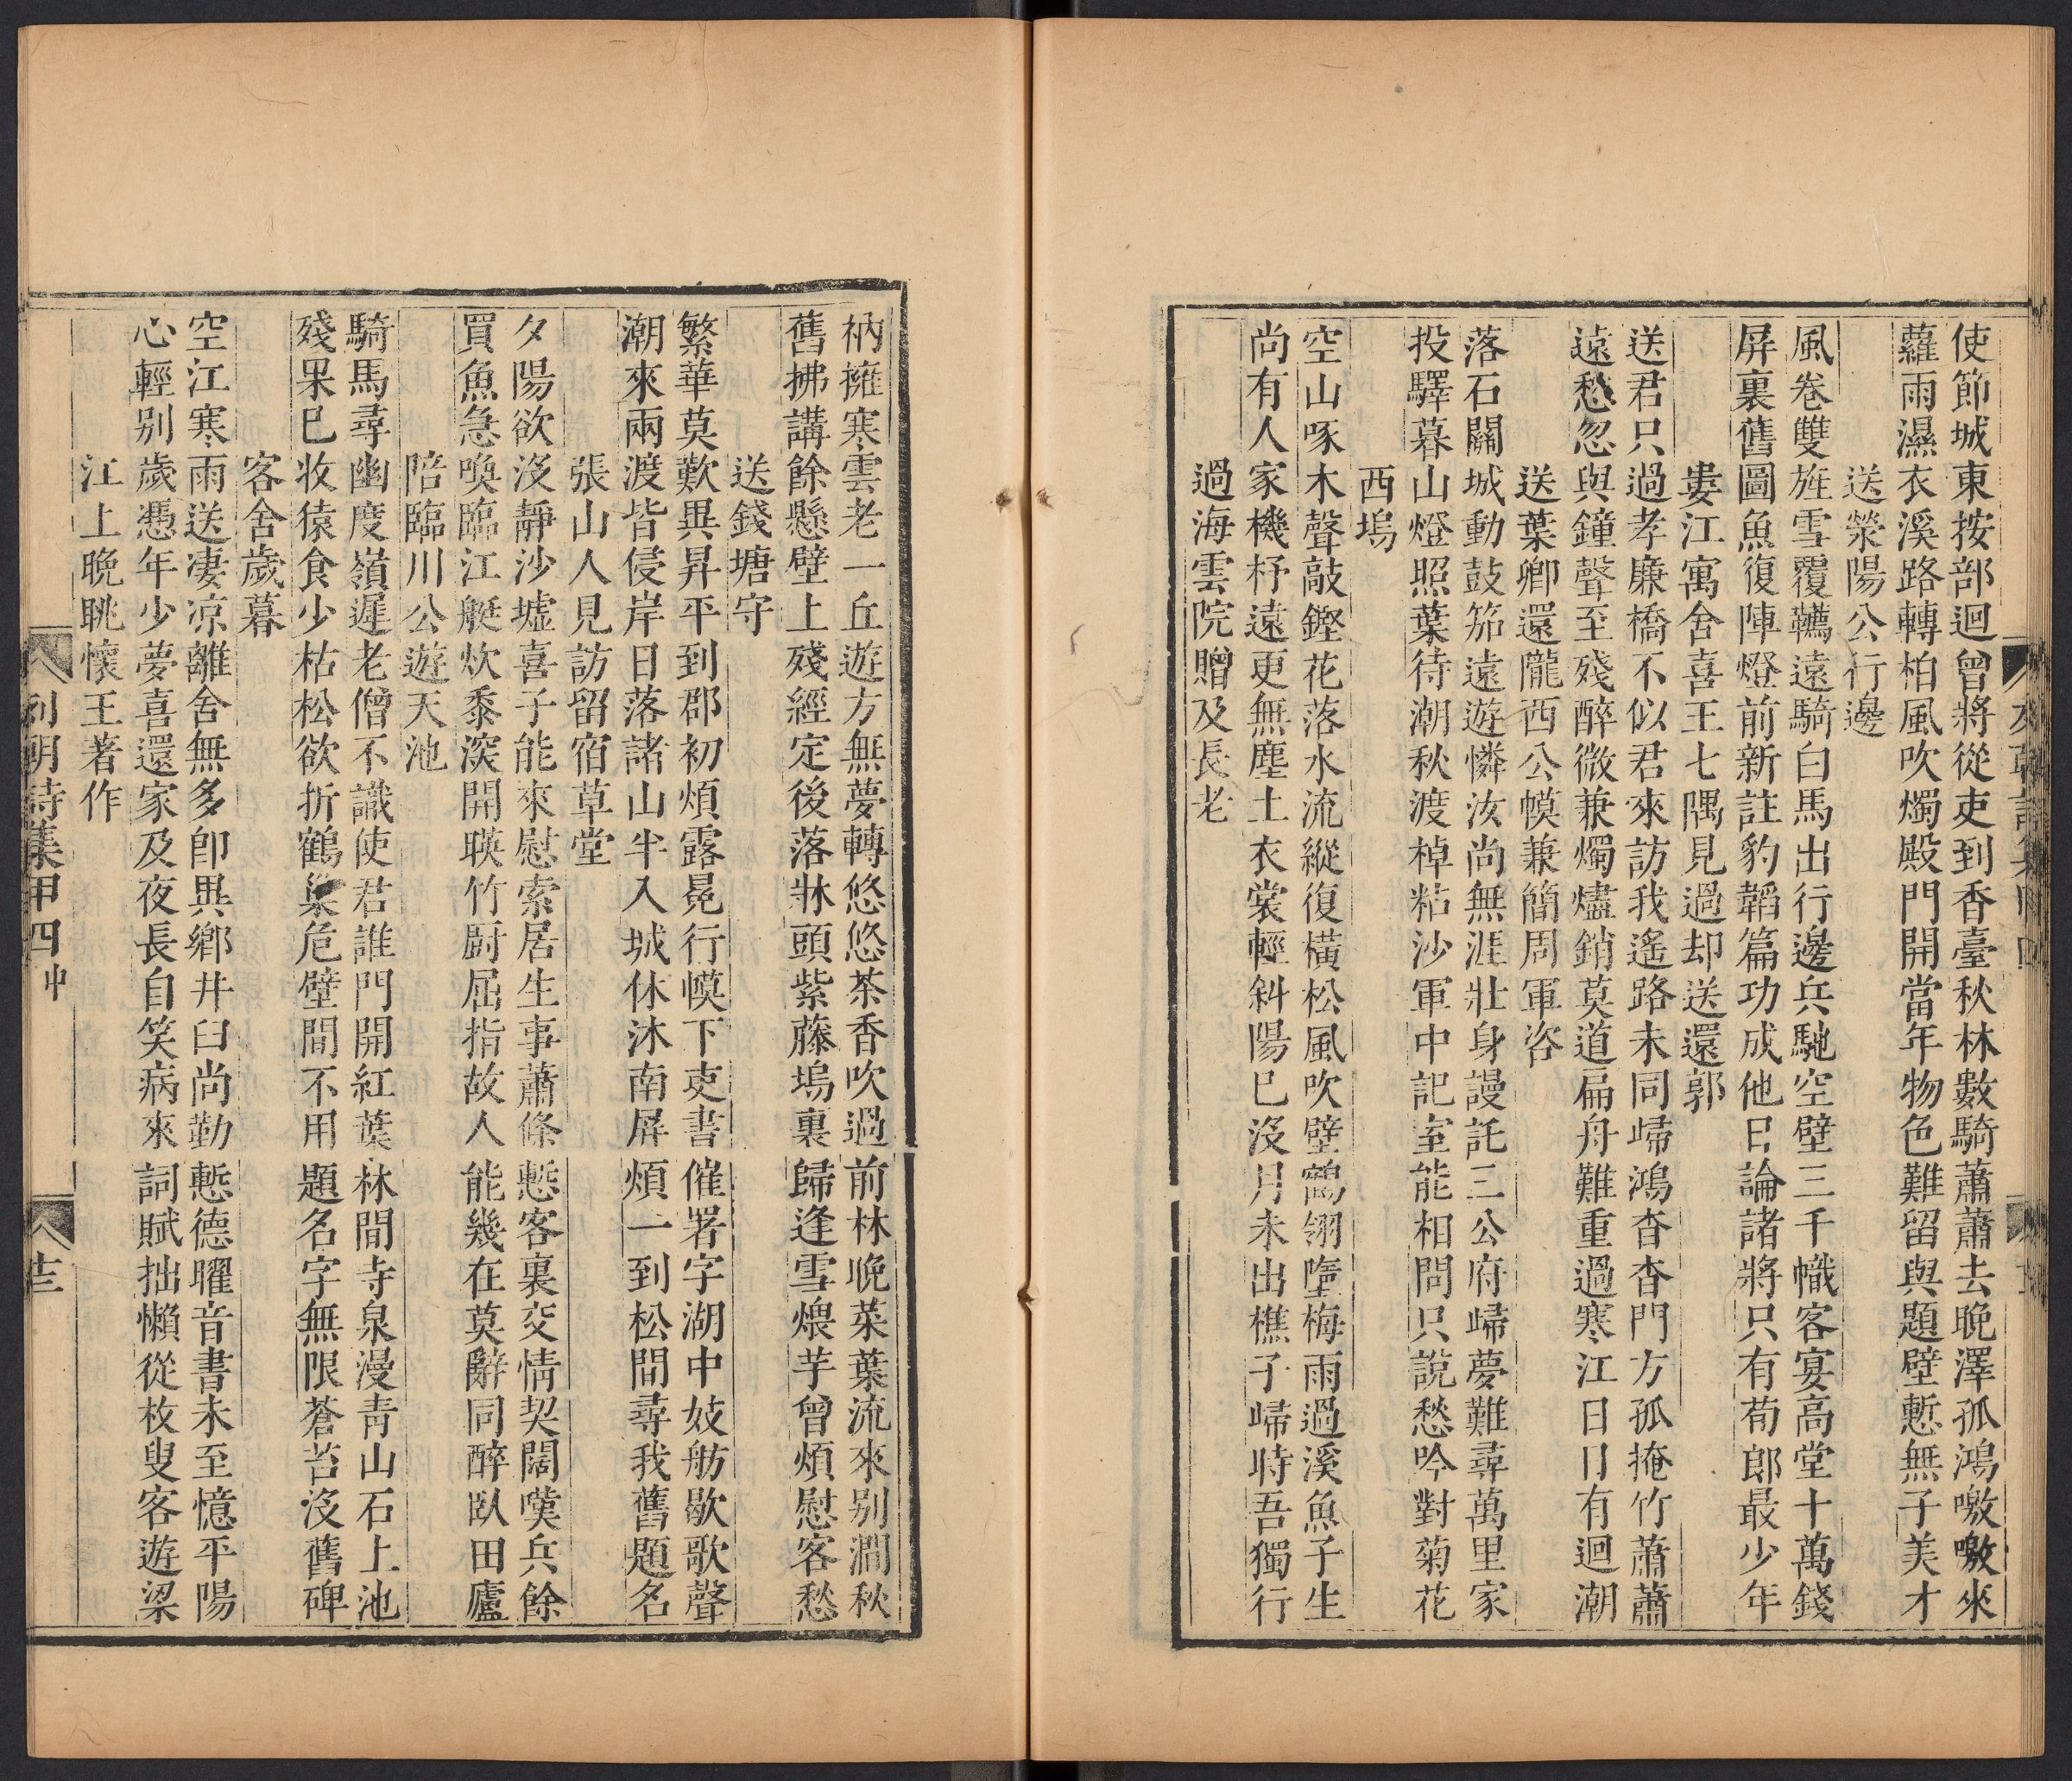 使節城東按部迴曾將從吏到香臺秋林數騎蕭蕭去晚澤孤鴻嗷嗷來
蘿雨濕衣溪路轉柏風吹燭殿門開當年物色難留與題壁慙無子美才
送滎陽公行邊
風卷雙旌雪覆韉遠騎白馬出行邊兵馳空壁三千幟客宴高堂十萬錢
屏裏舊圖魚復陣燈前新註豹韜篇功成他日論諸將只有荀郎最少年
婁江寓舍喜王七隅見過却送還郭
送君只過孝廉橋不似君來訪我遙路未同歸鴻杳杳門方孤掩竹蕭蕭
遠愁忽與鐘聲至殘醉微兼燭燼銷莫道扁舟難重過寒江日日有迴潮
送葉卿還隴西公幙兼簡周軍咨
落石關城動鼓笳遠遊憐汝尚無涯壯身謾託三公府歸夢難尋萬里家
投驛暮山燈照葉待潮秋渡棹粘沙軍中記室能相問只說愁吟對菊花
西塢
空山啄木聲敲鏗花落水流縱復橫松風吹壁鶴翎墮梅雨過溪魚子生
尚有人家機杼遠更無塵土衣裳輕斜陽已沒月未出樵子歸時吾獨行
過海雲院贈及長老
衲擁寒雲老一丘遊方無夢轉悠悠茶香吹過前林晚菜葉流來别澗秋
舊拂講餘懸壁上殘經定後落牀頭紫藤塢裏歸逢雪煨芋曾煩慰客愁
送錢塘守
繁華莫歎異昇平到郡初煩露冕行幙下吏書催署字湖中妓舫歇歌聲
潮來兩渡皆侵岸日落諸山半入城休沐南屏煩一到松間尋我舊題名
張山人見訪留宿草堂
夕陽欲沒靜沙墟喜子能來慰索居生事蕭條慙客裏交情契闊嘆兵餘
買魚急喚臨江艇炊黍深開暎竹厨屈指故人能幾在莫辭同醉臥田廬
陪臨川公遊天池
騎馬尋幽度嶺遲老僧不識使君誰門開紅葉林間寺泉漫靑山石上池
殘果已收猿食少枯松欲折鶴巢危壁間不用題名字無限蒼苔沒舊碑
客舍歲暮
空江寒雨送凄凉離舍無多卽異鄉井臼尚勤慙德曜音書未至憶平陽
心輕别歲憑年少夢喜還家及夜長自笑病來詞賦拙懶從枚叟客遊梁
江上晚眺懷王著作
列朝詩集甲四中
十三